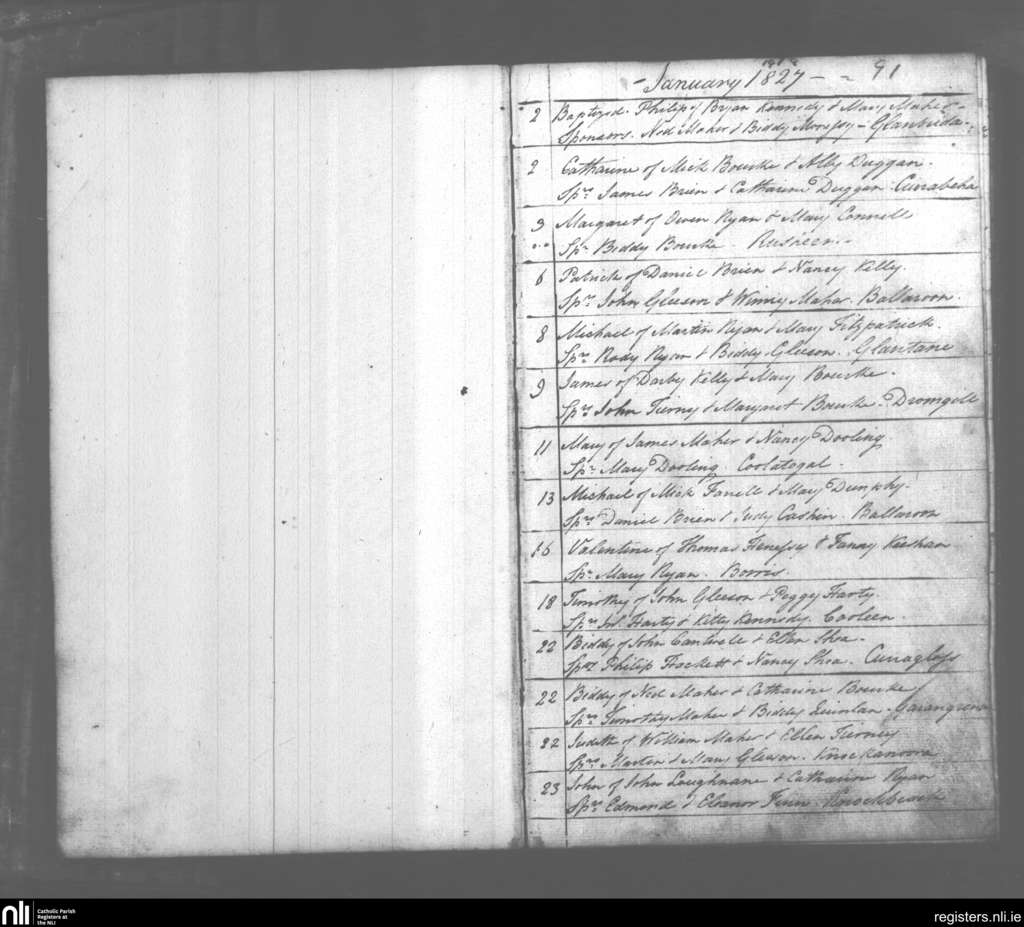 - January 1827 - - 91
2 Baptized. Philip of Bryan Kennedy & Mary Maher -
Sponsors. Ned Maher & Biddy Morissy - Glanbreda -
2 Catharine of Mick Bourke & Ally Duggan.
Sprs James Brien & Catharine Duggan. Currabaha
3 Margaret of Owen Ryan & Mary Connell
Spr Biddy Bourke. Rusheen -
6 Patrick of Daniel Brien & Nancy Kelly.
Sprs John Gleeson & Winny Maher. Ballaroon.
8 Michael of Martin Ryan & Mary Fitzpatrick.
Sprs Rody Ryan & Biddy Gleeson. Glantane
9 James of Darby Kelly & Mary Bourke.
Sprs John Tierny & Margaret Bourke. Dromgill
11 Mary of James Maher & Nancy Dooling
Spr Mary Dooling. Coolategal.
13 Michael of Mick Farrell & Mary Dunphy.
Sprs Daniel Brien & Judy Cashin. Ballaroon
16 Valentine of Thomas Henessy & Fanny Keshan
Spr Mary Ryan. Borris.
18 Timothy of John Gleeson & Peggy Harty.
Sprs Jn. Harty & Kitty Kennedy. Cooleen.
22 Biddy of John Cantwell & Ellen Shea.
Sprs Philip Hackett & Nancy Shea. Curraglass
22 Biddy of Ned Maher & Catharine Bourke
Sprs Timothy Maher & Biddy Quinlan.
22 Judith of William Maher & Ellen Tierney
Sprs Martin & Mary Gleeson. Knockanoora
23 John of John Loughnane & Catharine Ryan
Sprs Edmond & Eleanor Finn.
nli
Catholic Parish
Registers at
the NLI
registers.nli.ie